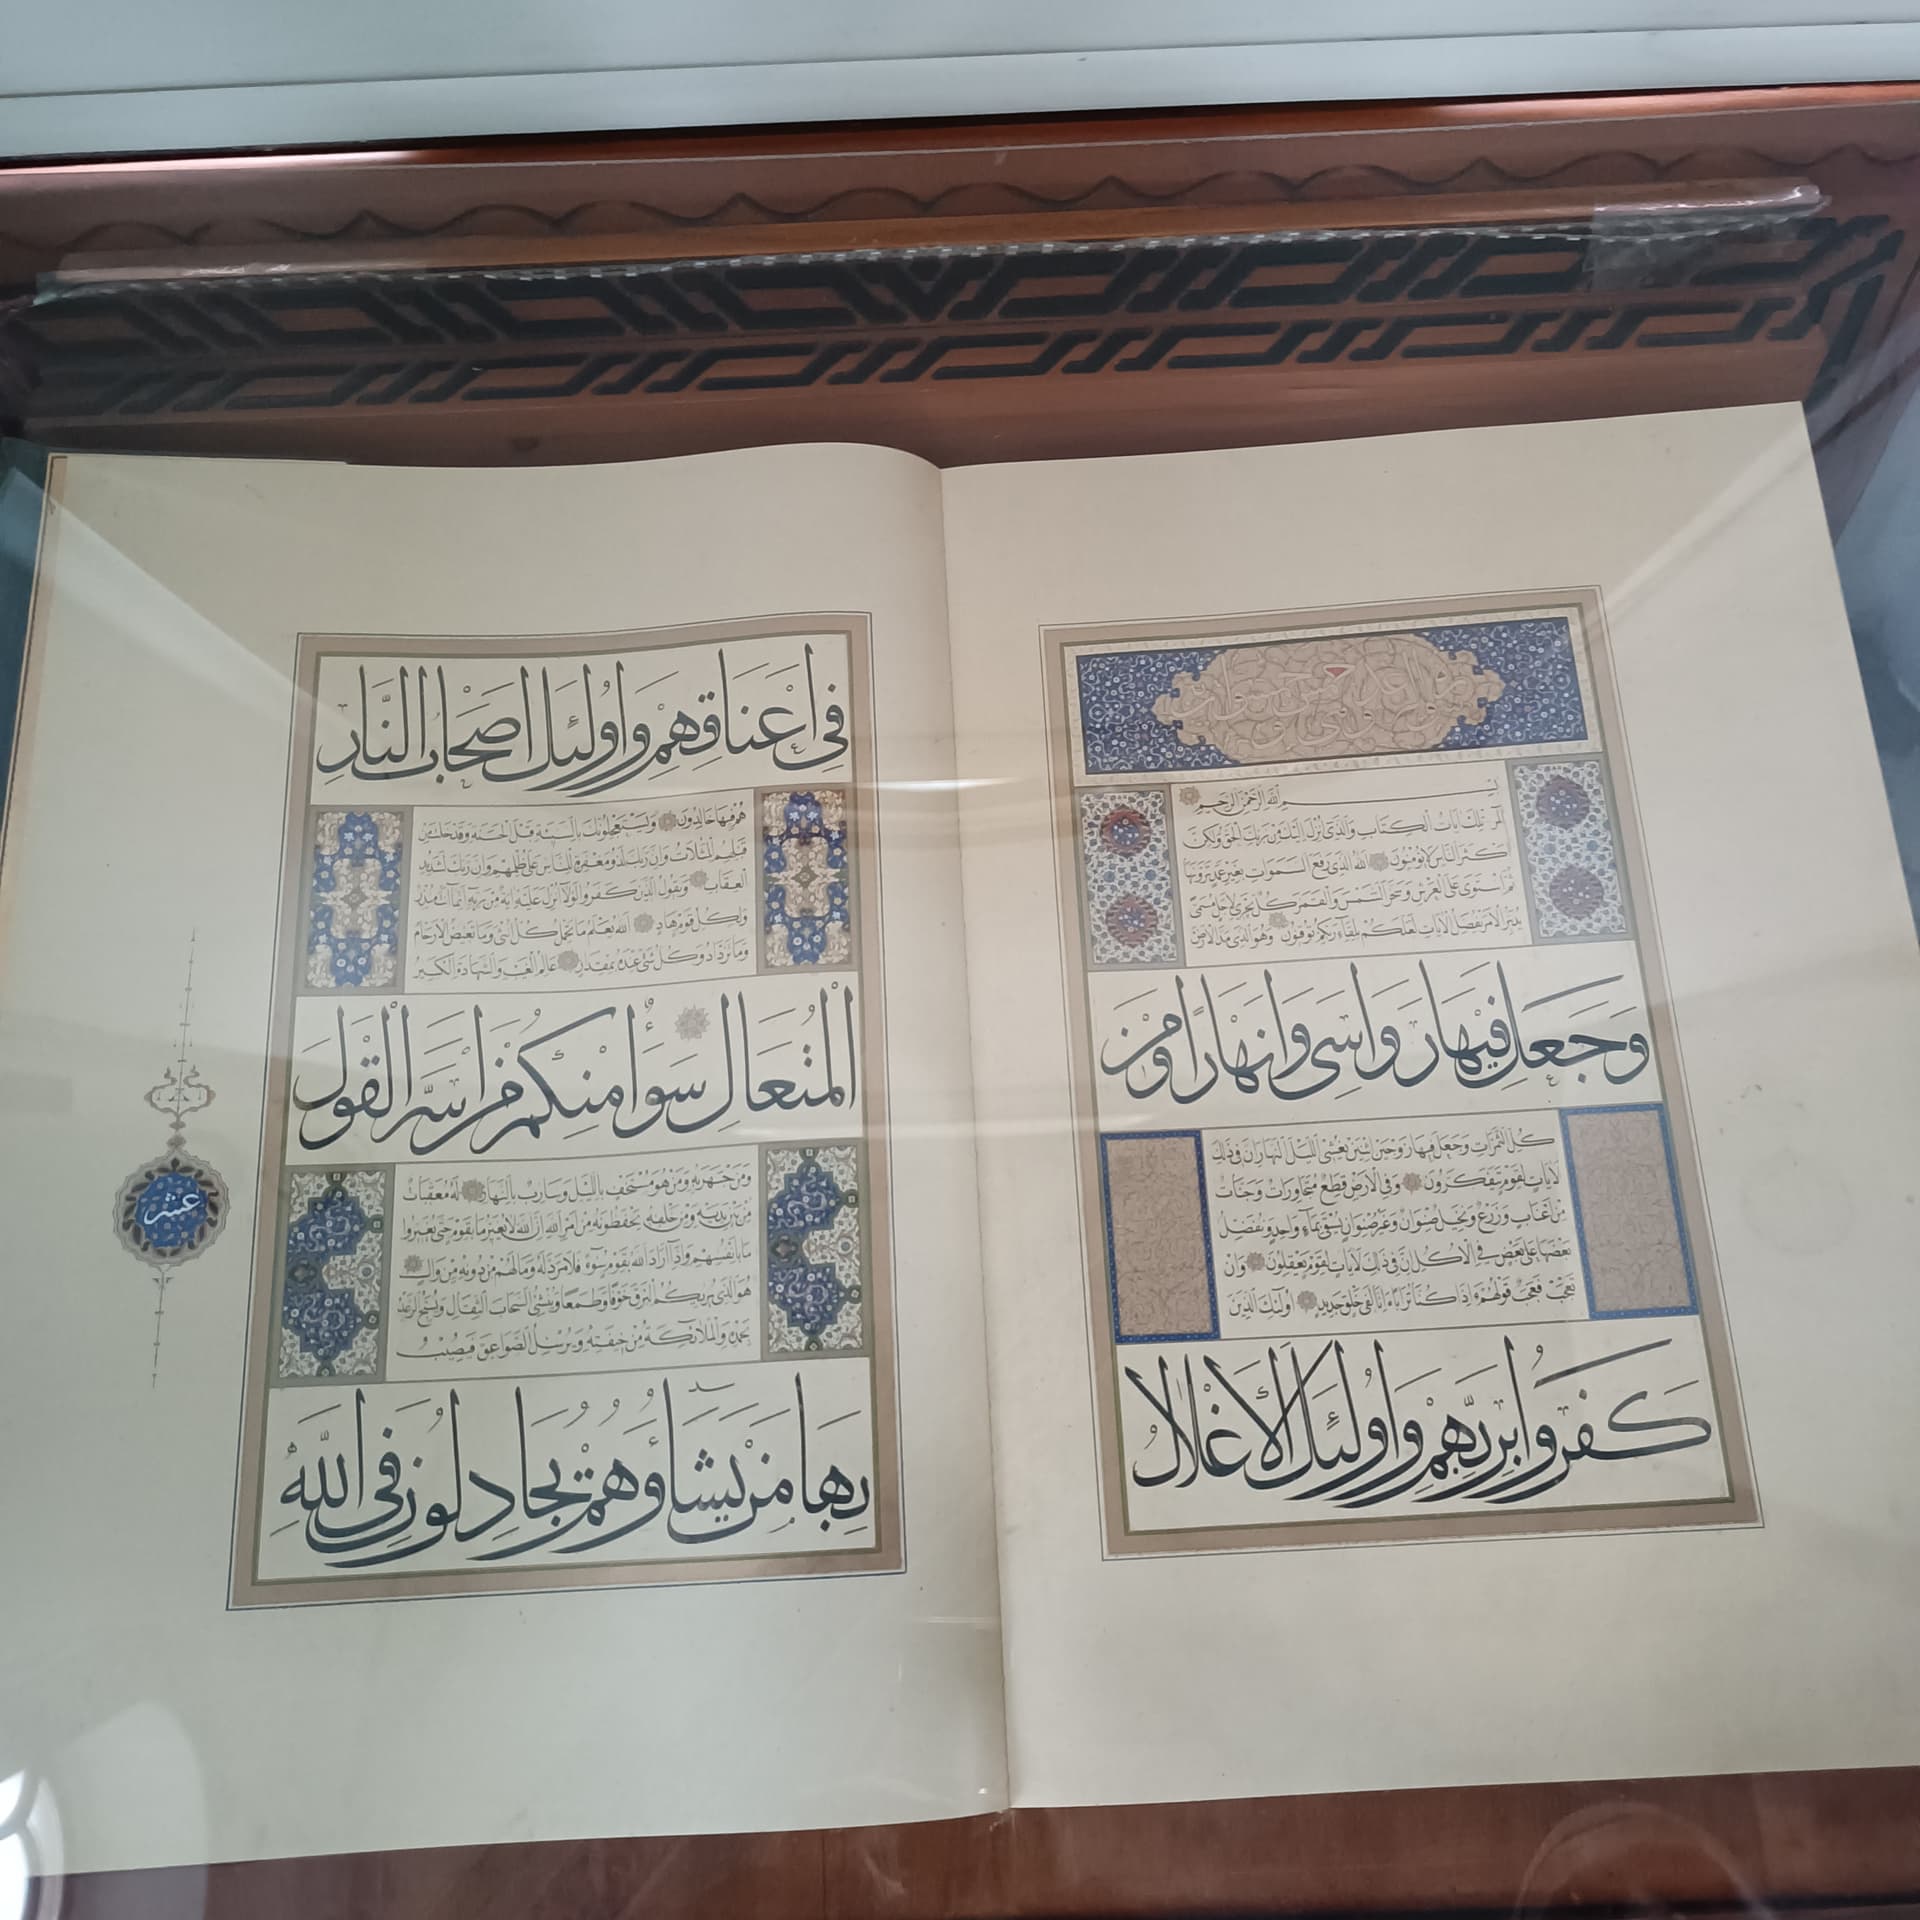 بسم الله الرحمن الرحيم
المر تلك ايات الكتاب والذى انزل اليك من ربك الحق ولكن
كثر الناس لا يؤمنون الله الذى رفع السموات بغير عمد ترونها
ثم استوى على العرش وسخر الشمس والقمر كل يجرى لاجل مسمى
يدبر الامر يفصل الايات لعلكم بلقاء ربكم توقنون وهو الذى مد الارض
وَجَعَلَ فيهَا رَوَاسِىَ وَاَنهَارًا وَمِنْ
كل الثمرات وجعل فيها زوجين اثنين يغشى الليل النهار ان فى ذلك
لايات لقوم يتفكرون وفى الارض قطع متجاورات وجنات
من اعناب وزرع ونخيل صنوان وغير صنوان يسقى بماء واحد ونفضل
بعضها على بعض فى الاكل ان فى ذلك لايات لقوم يعقلون وان
تعجب فعجب قولهم ءاذا كنا ترابا ءانا لفى خلق جديد اولئك الذين
كَفَرُوا بِرَبِّهِمْ وَاُولٰئِكَ الْاَغْلَالُ
فِى اَعْنَاقِهِمْ وَاُولٰئِكَ اَصْحَابُ النَّارِ
هم فيها خالدون ويستعجلونك بالسيئة قبل الحسنة وقد خلت من
قبلهم المثلات وان ربك لذو مغفرة للناس على ظلمهم وان ربك لشديد
العقاب ويقول الذين كفروا لولا انزل عليه اية من ربه انما انت منذر
ولكل قوم هاد الله يعلم ما تحمل كل انثى وما تغيض الارحام
وما تزداد وكل شئ عنده بمقدار عالم الغيب والشهادة الكبير
الْمُتَعَالِ سَوَاءٌ مِنْكُمْ مَنْ اَسَرَّ الْقَوْلَ
ومن جهر به ومن هو مستخف بالليل وسارب بالنهار له معقبات
من بين يديه ومن خلفه يحفظونه من امر الله ان الله لا يغير ما بقوم حتى يغيروا
ما بانفسهم واذا اراد الله بقوم سوءا فلا مرد له وما لهم من دونه من وال
هو الذى يريكم البرق خوفا وطمعا وينشئ السحاب الثقال ويسبح الرعد
بحمده والملائكة من خيفته ويرسل الصواعق فيصيب
بِهَا مَنْ يَشَاءُ وَهُمْ يُجَادِلُونَ فِى اللّٰهِ
عشر